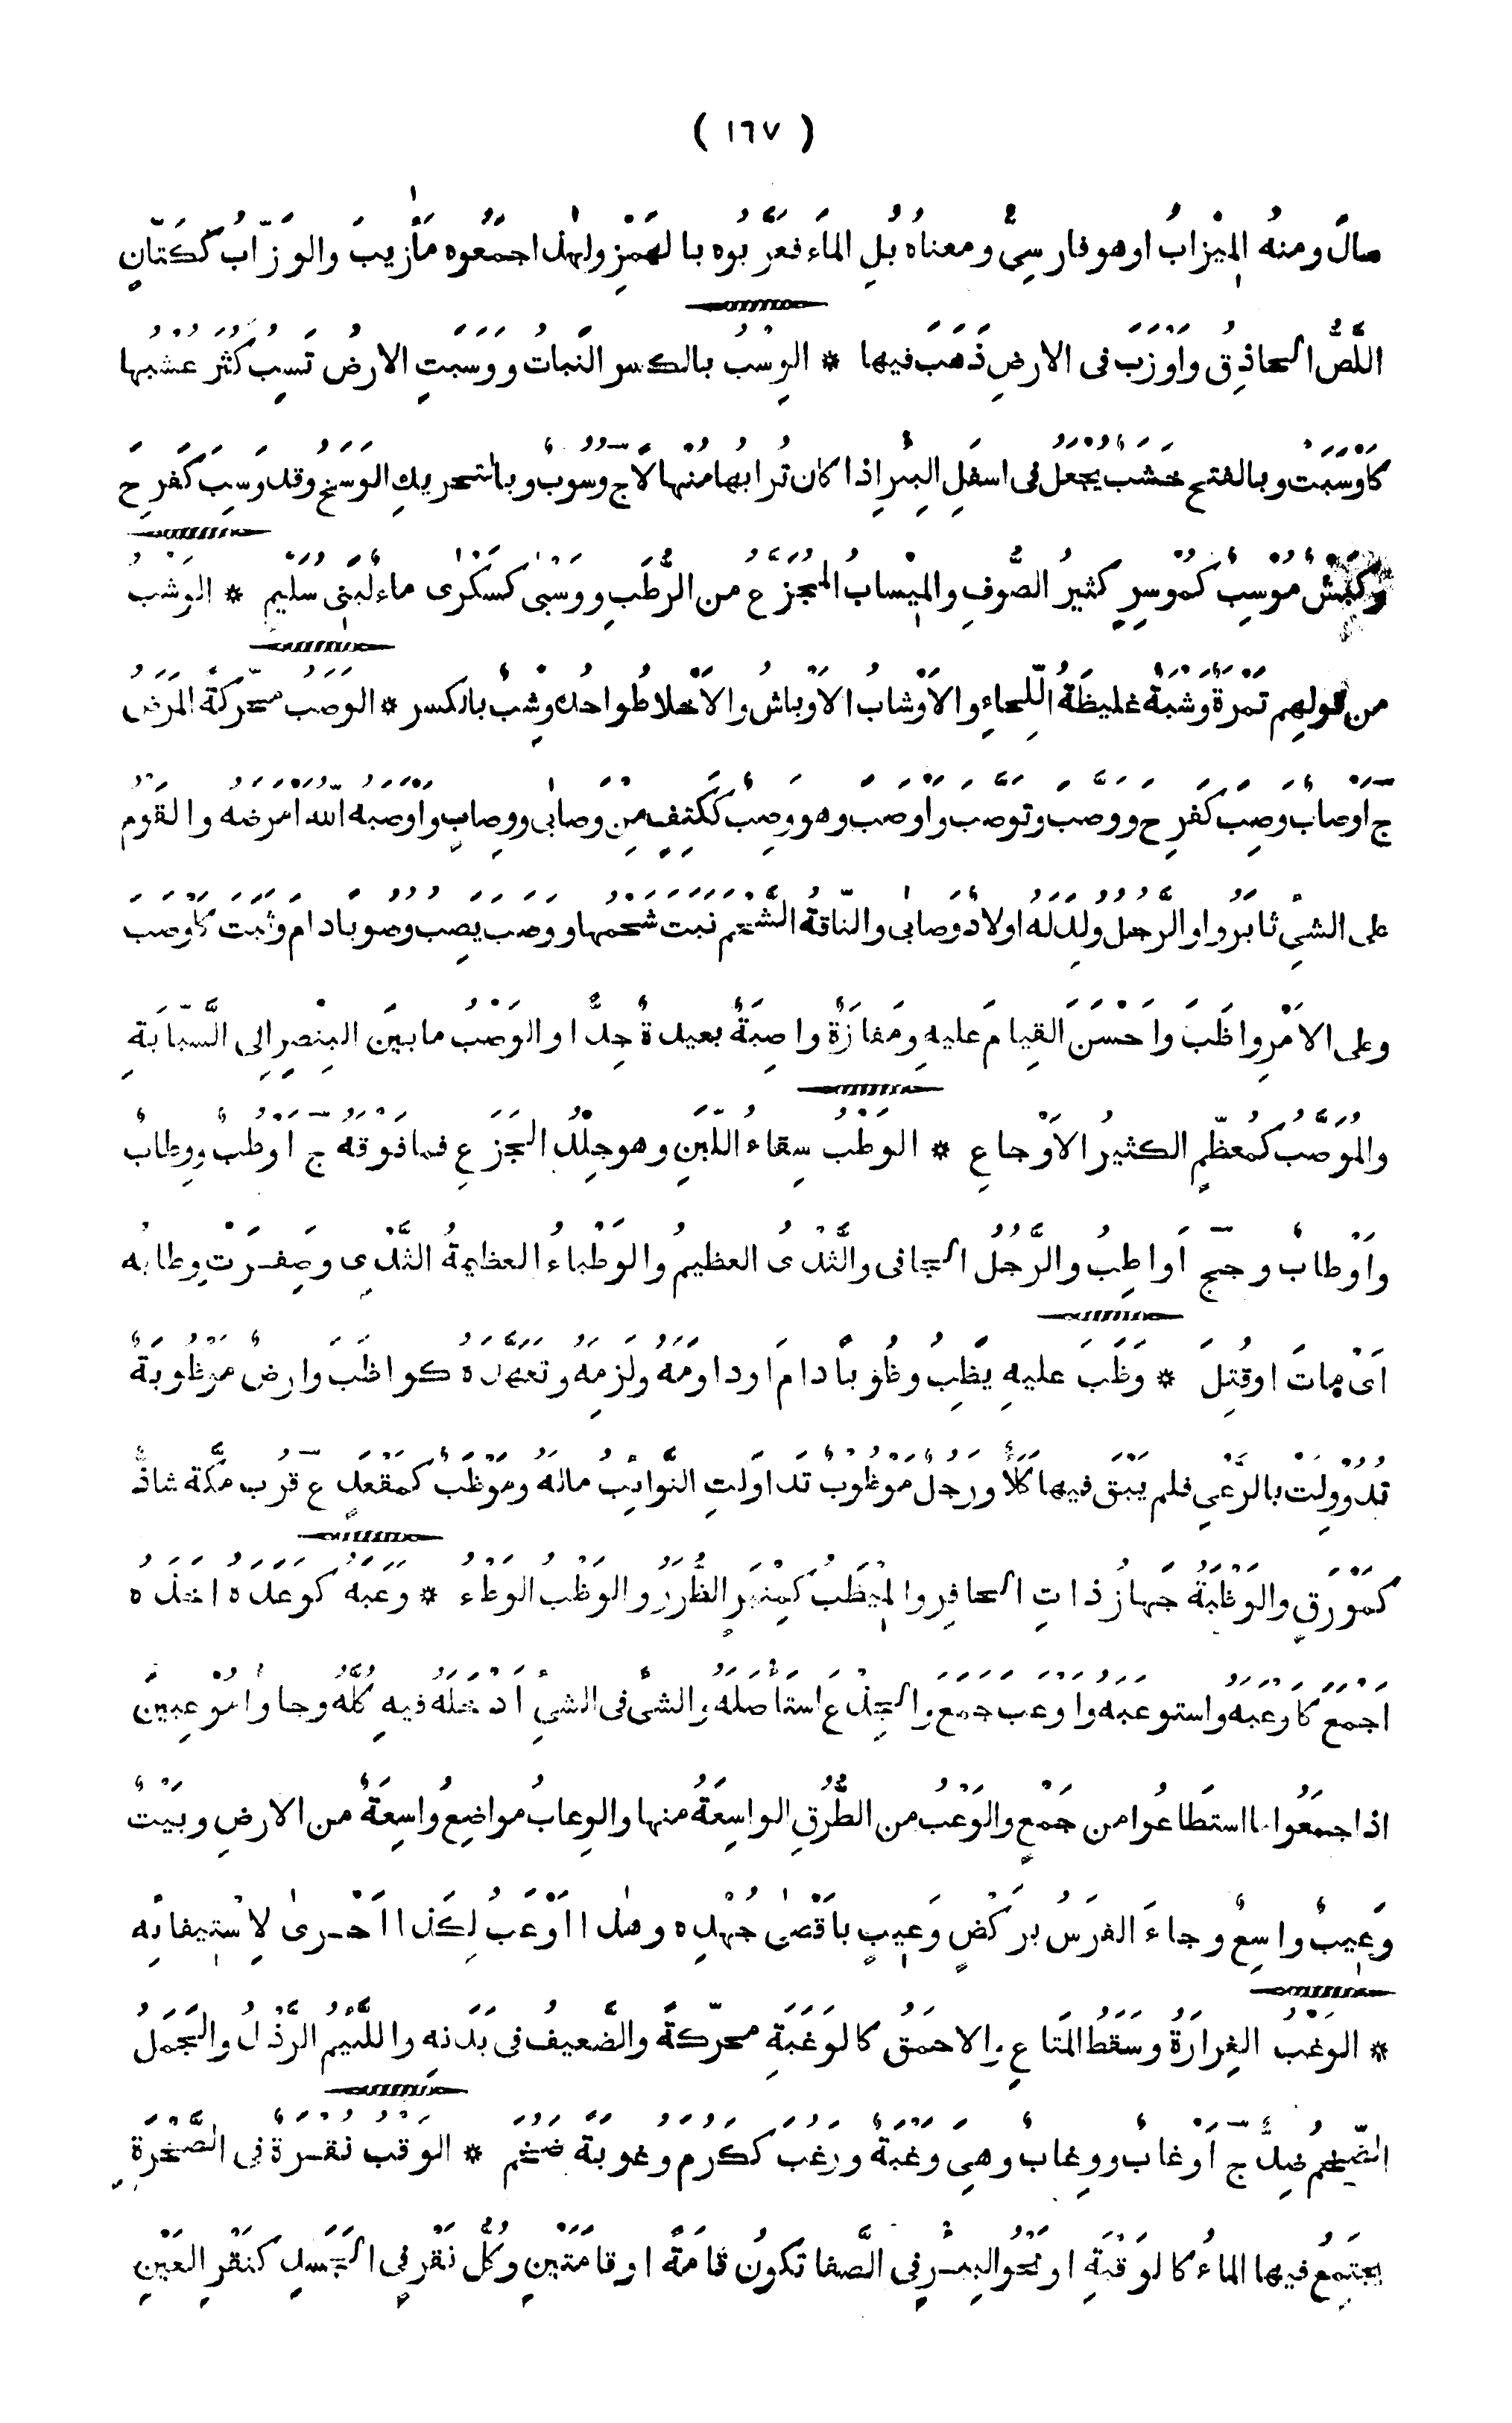 ( ١٦٧ )
سالَ ومنهُ المِيْزابُ اوهو فارسِىٌّ ومعناهُ بُلِ الماءَ فعَرَّبُوه بالهَمْزِ ولهٰذا جمَعُوه مآزيبَ والوَزّابُ كَكَتّانٍ
اللِّصُّ الحاذِقُ وَاَوْزَبَ فى الارضِ ذَهَبَ فيها * الوِسْبُ بالكسر النَّباتُ ووَسَبَتِ الارضُ تَسِبُ كَثُرَ عُشْبُها
كاَوْسَبَتْ وبالفتحِ خَشَبٌ يُجْعَلُ فى اسفَلِ البِئْرِ اذا كان تُرابُها مُنْهالاً ج وُسُوبٌ وبالتحريكِ الوَسَخُ وقد وَسِبَ كَفَرِحَ
وكَبْشٌ مُوْسِبٌ كمُوْسِرٍ كثيرُ الصُّوفِ والمِيْسابُ المُجَزَّعُ من الرُّطَبِ ووَسْبٰى كسَكْرٰى ماءٌ لبَنِى سُلَيْمٍ * الوَشْبُ
من قولِهِم تَمْرَةٌ وَشْبَةٌ غليظَةُ اللِّحاءِ والاَوْشابُ الاَوْباشُ والاَخْلاطُ واحدُه وِشْبٌ بالكسر * الوَصَبُ محرّكةً المَرَضُ
ج اَوْصابٌ وَصِبَ كَفَرِحَ ووَصَّبَ وتَوَصَّبَ واَوْصَبَ وهو وَصِبٌ ككَتِفٍ مِنْ وَصابٰى ووِصابٍ واَوْصَبَهُ اللّٰهُ اَمْرَضَهُ والقَوْمُ
على الشئِ ثابَرُوا والرَّجُلُ وُلِدَ لَهُ اولادٌ وَصابٰى والنّاقَةُ الشَّحْمَ نَبَتَ شَحْمُها ووَصَبَ يَصِبُ وُصُوبًا دامَ وثَبَتَ كاَوْصَبَ
وعلى الاَمْرِ واظَبَ واَحْسَنَ القِيامَ عليهِ ومَفازَةٌ واصِبَةٌ بعيدةٌ جِدًّا والوَصْبُ ما بيَن البِنْصِرِ الى السَّبّابَةِ
والمُوَصَّبُ كمُعَظّمٍ الكثيرُ الاَوْجاعِ * الوَطْبُ سِقاءُ اللّبَنِ وهو جِلْدُ الجَزَعِ فما فَوْقَهُ ج اَوْطُبٌ ووِطابٌ
واَوْطابٌ وجج اَواطِبُ والرَّجُلُ الجافى والثَّدْىُ العظيمُ والوَطْباءُ العظيمةُ الثَّدْىِ وصَفِرَتْ وِطابُه
اَىْ ماتَ اوقُتِلَ * وَظَبَ عليهِ يَظِبُ وظُوْبًا دامَ او داوَمَهُ ولَزِمَهُ وتعهّدَهُ كواظَبَ وارضٌ مَوْظُوبَةٌ
تُدُوْوِلَتْ بالرَّعْىِ فلم يَبْقَ فيها كَلَأٌ ورَجُلٌ مَوْظُوبٌ تَداوَلَتِ النَّوائِبُ مالَهُ ومَوْظَبٌ كمَقْعَدٍ ع قُرْبَ مَكَّةَ شاذٌّ
كمَوْرَقٍ والوَظْبَةُ جَهازُ ذاتِ الحافِرِ والمِيْظَبُ كمِنْبَرٍ الظُّرَرُ والوَظْبُ الوَطْءُ * وَعَبَهُ كوَعَدَهُ اخَذَهُ
اَجْمَعَ كاَوعَبَه واستوعَبَه واَوعَبَ جَمَعَ والجِذعَ استَأصَلَه والشىَٔ فى الشئِ اَدخَلَه فيهِ كُلَّه وجاؤا مُوْعِبِينَ
اذا جمَعُوا ما استطَاعُوا من جَمْعٍ والوَعْبُ من الطُّرُقِ الواسِعَةُ منها والوِعابُ مواضِعُ واسِعَةٌ من الارضِ وبَيْتٌ
وَعِيبٌ واسِعٌ وجاءَ الفرَسُ برَكْضٍ وَعِيبٍ بِاَقْصٰى جُهْدِه وهٰذا اَوْعَبُ لِكَذا اَحْرٰى لاِسْتِيفائِه
* الوَغْبُ الغِرارَةُ وسَقَطُ المَتاعِ والاحمَقُ كالوَغَبَةِ محرّكةً والضَّعيفُ فى بَدَنِه واللَّئيمُ الرَّذْلُ والجَمَلُ
الضّخمُ ضِدٌّ ج اَوْغابٌ ووِغابٌ وهى وَغْبَةٌ ووَغُبَ ككَرُمَ وُغُوبَةً ضَخُمَ * الوَقْبُ نُقْرَةٌ فى الصَّخْرَةِ
يجتَمِعُ فيها الماءُ كالوَقْبَةِ او نَحْوُ البِئْرِ فى الصَّفا تكونُ قامَةً او قامَتَيْنِ وكُلُّ نَقْرٍ فى الجَسَدِ كنَقْرِ العَيْنِ